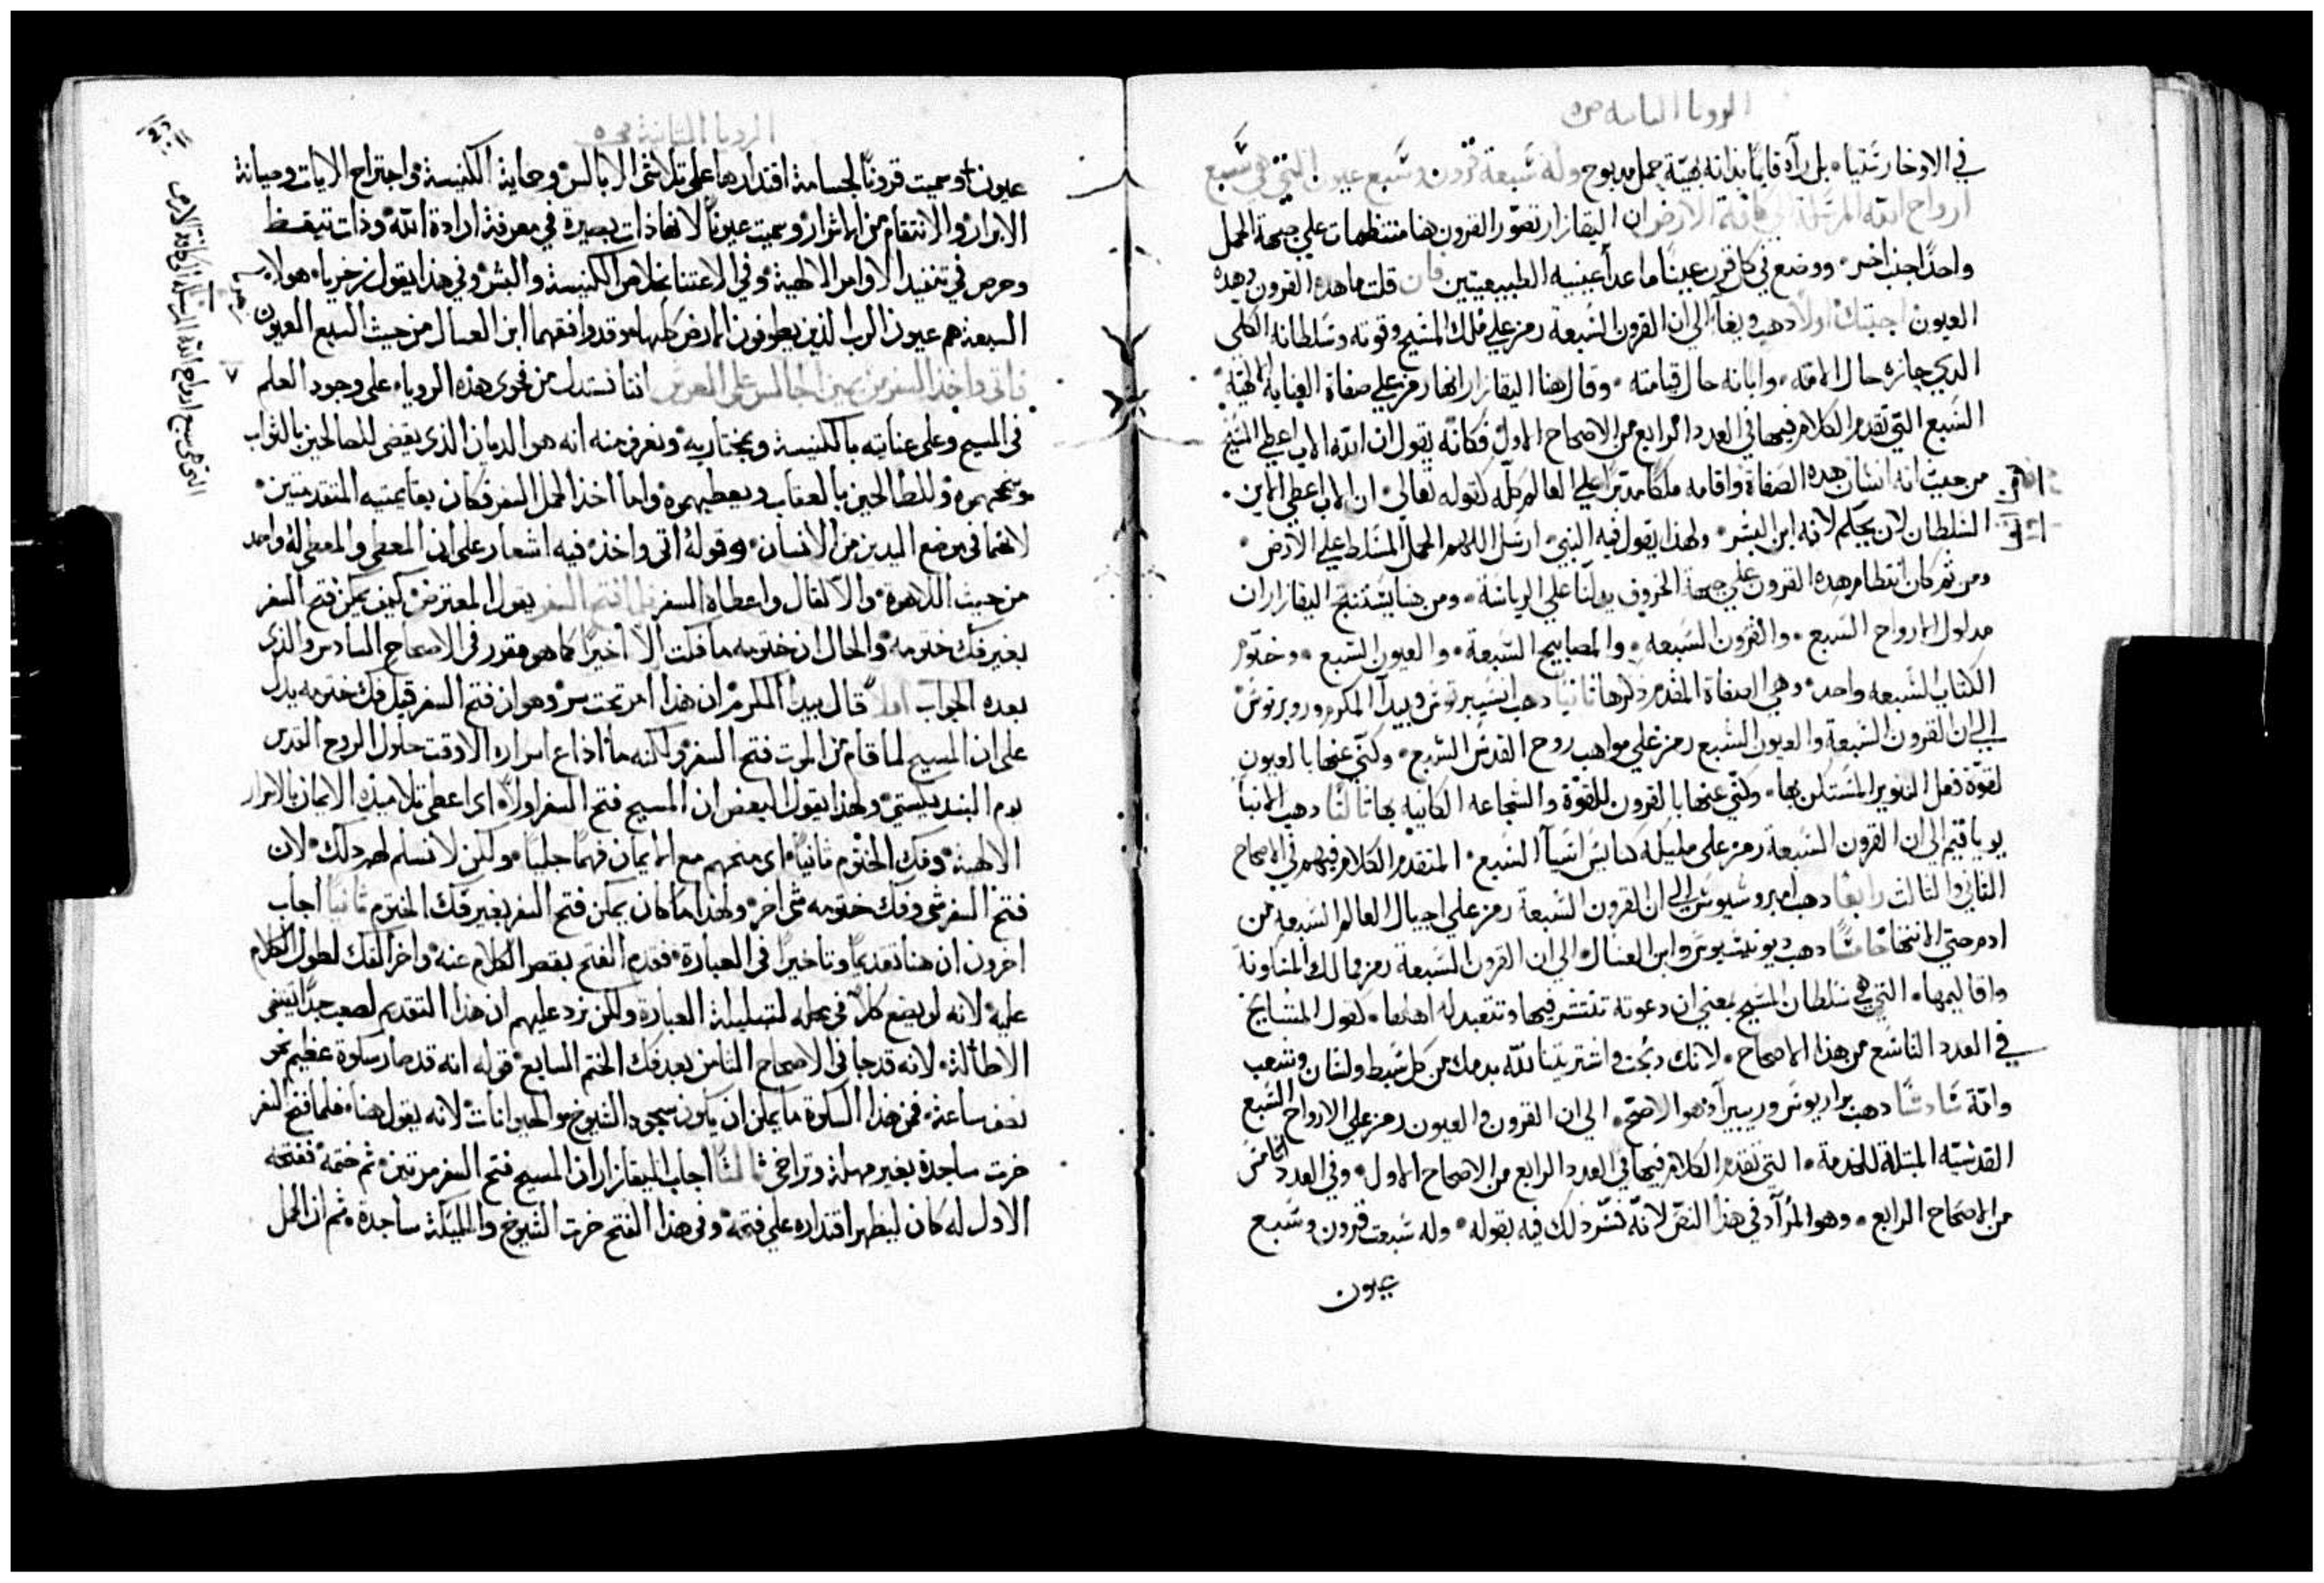 الرويا الثانية ص ٥
في الاوخارستيا، بل رآه قايمًا بذاته بهيّة حمل مدبوح وله سبعة قرون وسبع عيون التي هي سبع
ارواح الله المرسلة الى كافة الارض ان اليقازار تصوّر القرون هنا منتظمات علي جبهة الحمل
واحدًا جنب اخر. ووضع في كل قرن عينًا ما عدا عينيه الطبيعيتين فان قلت ما هده القرون وهده
العيون اجبتك اولًا دهب ويغاس الي ان القرون السبعة رمز علي ملك المسيح وقوته وسلطانه الكلي
الدي حازه حال الامه، وابانه حال قيامته، وقال هنا اليقازار انها رمز علي صفاة العناية الالهية
السبع التي تقدم الكلام فيها في العدد الرابع من الاصحاح الاول فكانّه يقول ان الله الاب اعطي المسيح
من حيث انه انسان هده الصفاة واقامه ملكًا مدبّرًا علي العالم كلّه كقوله تعالي ان الاب اعطي الابن
السلطان لان يحكم لانه ابن البشر، ولهدا يقول فيه النبي ارسل اللهم الحمل المسلط علي الارض
ومن ثم كان انتظام هده القرون علي جبهة الخروف يدلّنا علي الرياسة، ومن هنا يستنتج اليقازار ان
مدلول الارواح السبع، والقرون السبعه، والمصابيح السبعة، والعيون السبع، وختوم
الكتاب السبعه واحد، وهي الصفاة المقدم دكرها ثانيًا دهب انسيبرتوس وبيدا المكرم وروبرتوس
الي ان القرون السبعة والعيون السبع رمز علي مواهب روح القدس السبع، وكنّي عنها بالعيون
لقوّة فعل التنوير المستكن بها، وكنّي عنها بالقرون للقوّة والشجاعه الكاينه بها ثالثًا دهب الانبا
يوياقيم الي ان القرون السبعة رمز علي مليلة كنايس اسيا السبع، المتقدم الكلام فيهم في الاصحاح
الثاني والثالث رابعًا دهب امبروسيوس الي ان القرون السبعة رمز علي اجيال العالم السبعه من
ادم حتي الانتها خامسًا دهب ديونيسيوس وابن العسال الي ان القرون السبعة رمز ممالك المسكونة
واقاليمها، التي هي سلطان المسيح بمعني ان دعوته تنتشر فيها وتتعبد له اهلها، كقول المشايخ
في العدد التاسع من هدا الاصحاح، لانك دبحت واشتريتنا لله بدمك من كل سبط ولسان وشعب
وامّة سادسًا دهب براريوس وريبيرا وهو الاصح، الي ان القرون والعيون رمز علي الارواح السبع
القدسيّه المبتلة للخدمة، التي تقدّم الكلام فيها في العدد الرابع من الاصحاح الاول، وفي العدد الثامن
من الاصحاح الرابع، وهو المراد في هدا النصّ لانّه فسّر دلك فيه بقوله، وله سبعت قرون وسبع
عيون
الرويا الثانية ص ٥
عيون، وسميت قرونًا لجسامة اقتدارها على تلاشى الابالس، وحماية الكنيسة، واجتراح الايات وصيانة
الابرار، والانتقام من الاشرار، وسميت عيونًا لانها ذات بصيرة في معرفة ارادة الله، وذات تيقظ
وحرص في تنفيذ الاوامر الالهية، وفي الاعتنا بخلاص الكنيسة والبشر، وفي هذا يقول زخريا، هولاء
السبعة هم عيون الرب الذين يطوفون الارض كلها، وقد وافقهما ابن العسال من حيث السبع العيون
فاتى واخذ السفر من يمين الجالس على العرش اننا نستدل من فحوى هذه الرويا، على وجود العلم
في المسيح وعلى عنايته بالكنيسة وبمختاريه ونعرف منه انه هو الديان الذي يقضي للصالحين بالثواب
ويمنحهموه، وللطالحين بالعقاب ويعطيهموه، واما اخذ الحمل السفر فكان بقايمتيه المتقدمتين
لانهما في موضع اليدين من الانسان، وقوله اتى واخذ، فيه اشعار على ان المعطى والمعطى له واحد
من حيث اللاهوة، والا لقال واعطاه السفر فلما فتح السفر يقول المعترض كيف يمكن فتح السفر
بغير فك ختومه، والحال ان ختومه ما فكت الا اخيرًا كما هو مقرر في الاصحاح السادس والذي
بعده الجواب اولًا قال بيدا المكرم، ان هذا امر تحت سر، وهو ان فتح السفر قبل فك ختومه يدل
على ان المسيح لما قام من الموت فتح السفر، ولكنه ما اذاع اسراره الا وقت حلول الروح القدس
يوم البنديكستي، ولهذا يقول البعض ان المسيح فتح السفر اولًا، اى اعطى تلاميذه الايمان بالاسرار
الالهية، وفك الختوم ثانيًا، اى منحهم مع الايمان فهمًا جليًا، ولكن لا نسلم لهم ذلك، لان
فتح السفر شي وفك ختومه شي اخر، ولهذا ما كان يمكن فتح السفر بغير فك الختوم ثانيًا اجاب
اخرون ان هنا تقديمًا وتاخيرًا في العبارة، فقدم الفتح بقصر الكلام عنه، واخر الفك لطول الكلام
عليه، لانه لو يضع كلًا في محله لتسلسلت العبارة ولكن نرد عليهم ان هذا التقديم لصعب جدًا يتضي
الاطالة، لانه قد جا في الاصحاح الثامن بعد فك الختم السابع، قوله انه قد صار سكوة عظيم نحو
نصف ساعة، فمن هذا السكوة ما يمكن ان يكون سجود الشيوخ والحيوانات، لانه يقول هنا، فلما فتح السفر
خرت ساجدة بغير مهلة وتراخى ثالثًا اجاب اليقازار ان المسيح فتح السفر مرتين، ثم ختمه، ففتحه
الاول له كان ليظهر اقتداره على فتحه، وفى هذا الفتح خرت الشيوخ والمليكة ساجدة، ثم ان الحمل
التي هي سبع ارواح الله المرسلة الى كافة الارض